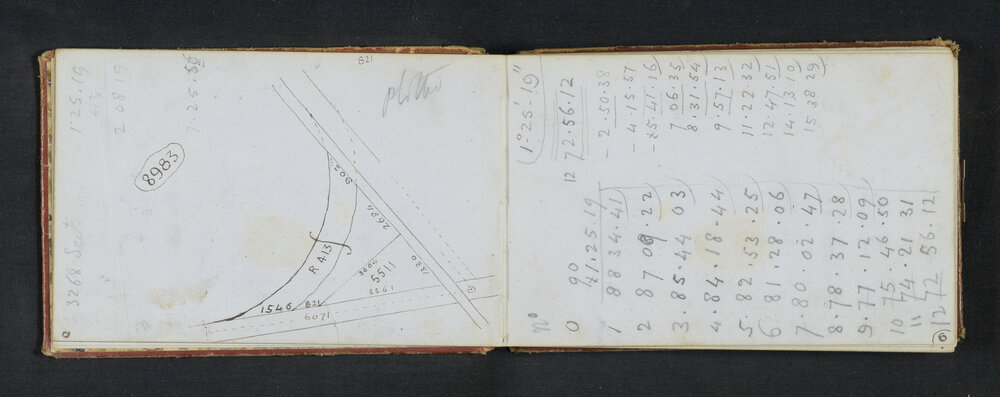 821
1·25·19
43
2 08 19
7·25·50
8983
3268 Sect
9024
2684
1320
3004
5511
1923
R A 13
1546
821
1209
1°-25'-19"
12 72·56·12
Nº
0 90
1·25·19
1 88 34·41
2 87 09·22
3·85·44 03
4·84·18·44
5·82·53·25
6 81·28·06
7·80 02·47
8·78·37·28
9·77·12·09
10 75·46·50
11 74·21 31
12 72 56·12
- 2·50·38
- 4·15·57
- 5·41·16
7·06·35
8·31·54
9·57·13
11·22·32
12·47·51
14·13 10
15 38 29